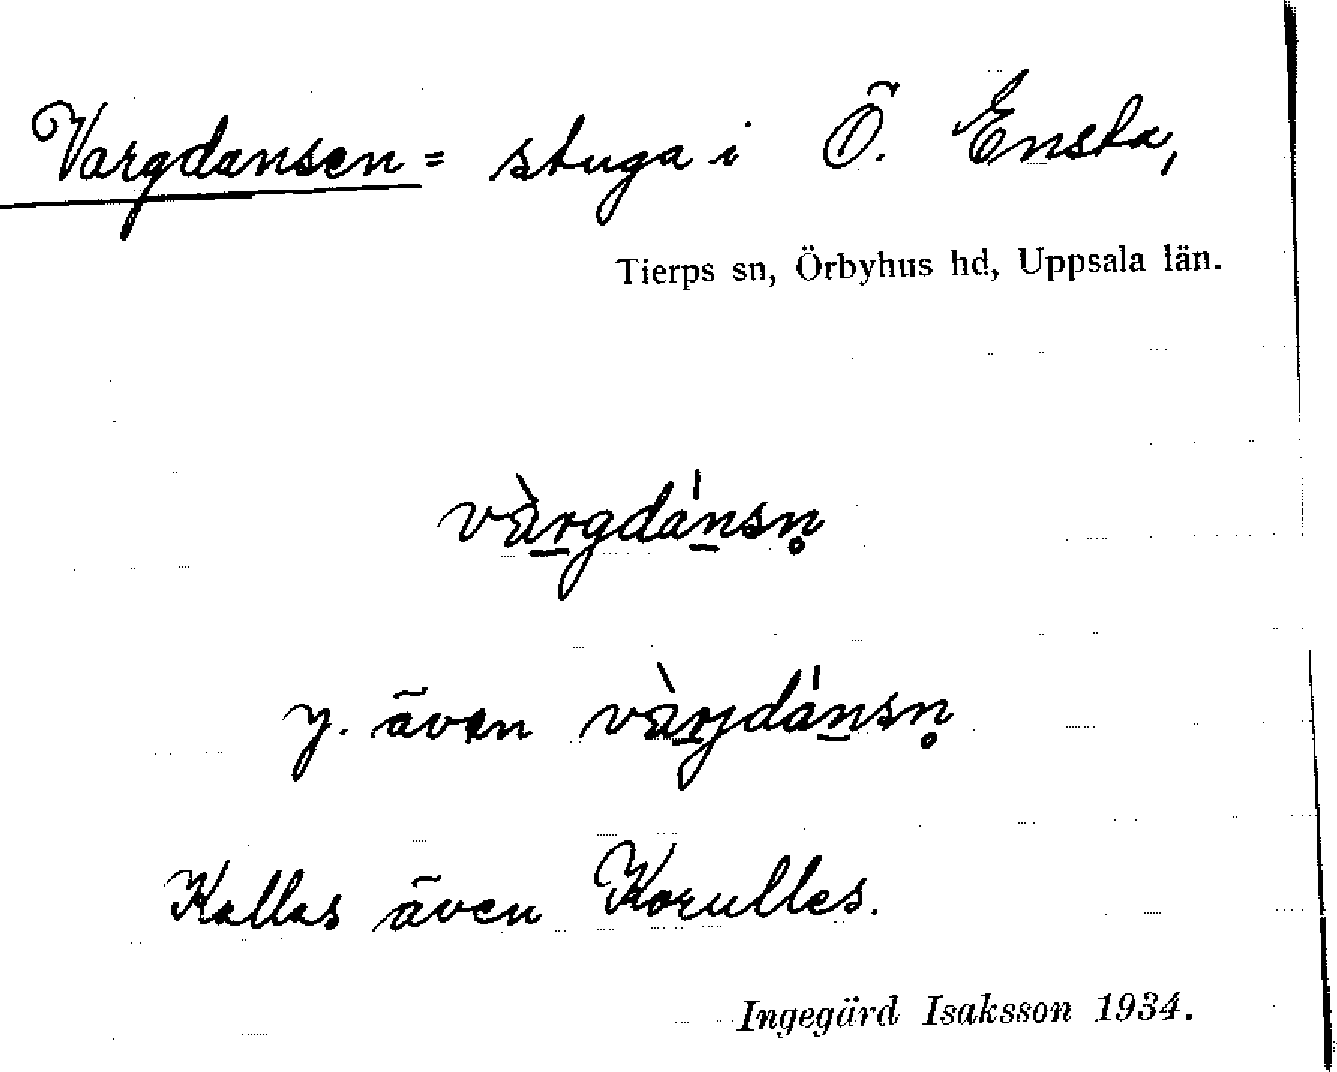 Vargdansen = stuga i Ö. Ensta,
Tierps sn, Örbyhus hd, Uppsala län.
vàr̠gdán̠sn̥
y. även vàr̠jdán̠sn̥
Kallas även Korulles.
Ingegärd Isaksson 1934.